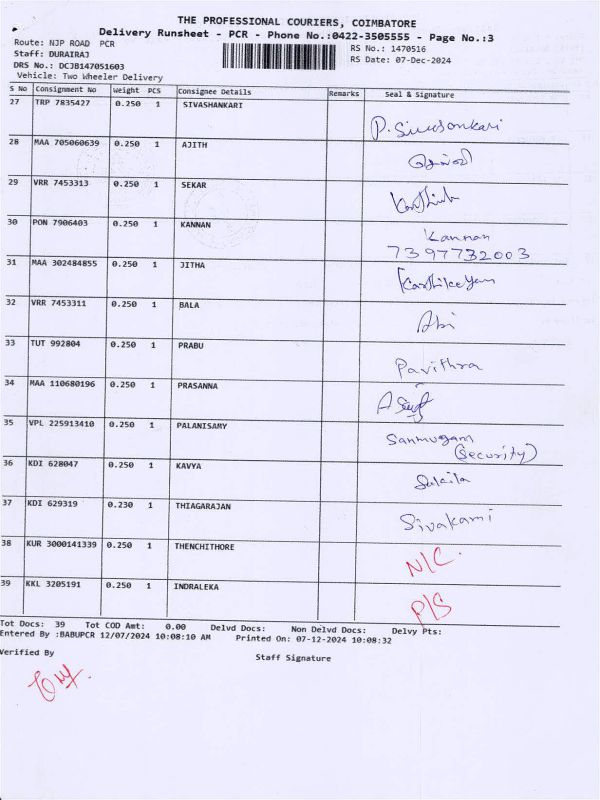 THE PROFESSIONAL COURIERS, COIMBATORE
Delivery Runsheet - PCR - Phone No.:0422-3505555 - Page No.:3
Route: NJP ROAD PCR
Staff: DURAIRAJ
DRS No.: DCJB147051603
Vehicle: Two Wheeler Delivery
RS No.: 1470516
RS Date: 07-Dec-2024
S No Consignment No Weight PCS Consignee Details Remarks Seal & Signature
27 TRP 7835427 0.250 1 SIVASHANKARI P. Sivasankari
28 MAA 705060639 0.250 1 AJITH
29 VRR 7453313 0.250 1 SEKAR
30 PON 7906403 0.250 1 KANNAN Kannan
7397732003
31 MAA 302484855 0.250 1 JITHA Karthikeyan
32 VRR 7453311 0.250 1 BALA Abi
33 TUT 992804 0.250 1 PRABU Pavithra
34 MAA 110680196 0.250 1 PRASANNA
35 VPL 225913410 0.250 1 PALANISAMY Sanmugam
(Security)
36 KDI 628047 0.250 1 KAVYA
37 KDI 629319 0.230 1 THIAGARAJAN Sivakami
38 KUR 3000141339 0.250 1 THENCHITHORE N/C.
39 KKL 3205191 0.250 1 INDRALEKA P/S
Tot Docs: 39 Tot COD Amt: 0.00 Delvd Docs: Non Delvd Docs: Delvy Pts:
Entered By :BABUPCR 12/07/2024 10:08:10 AM Printed On: 07-12-2024 10:08:32
Verified By
Staff Signature